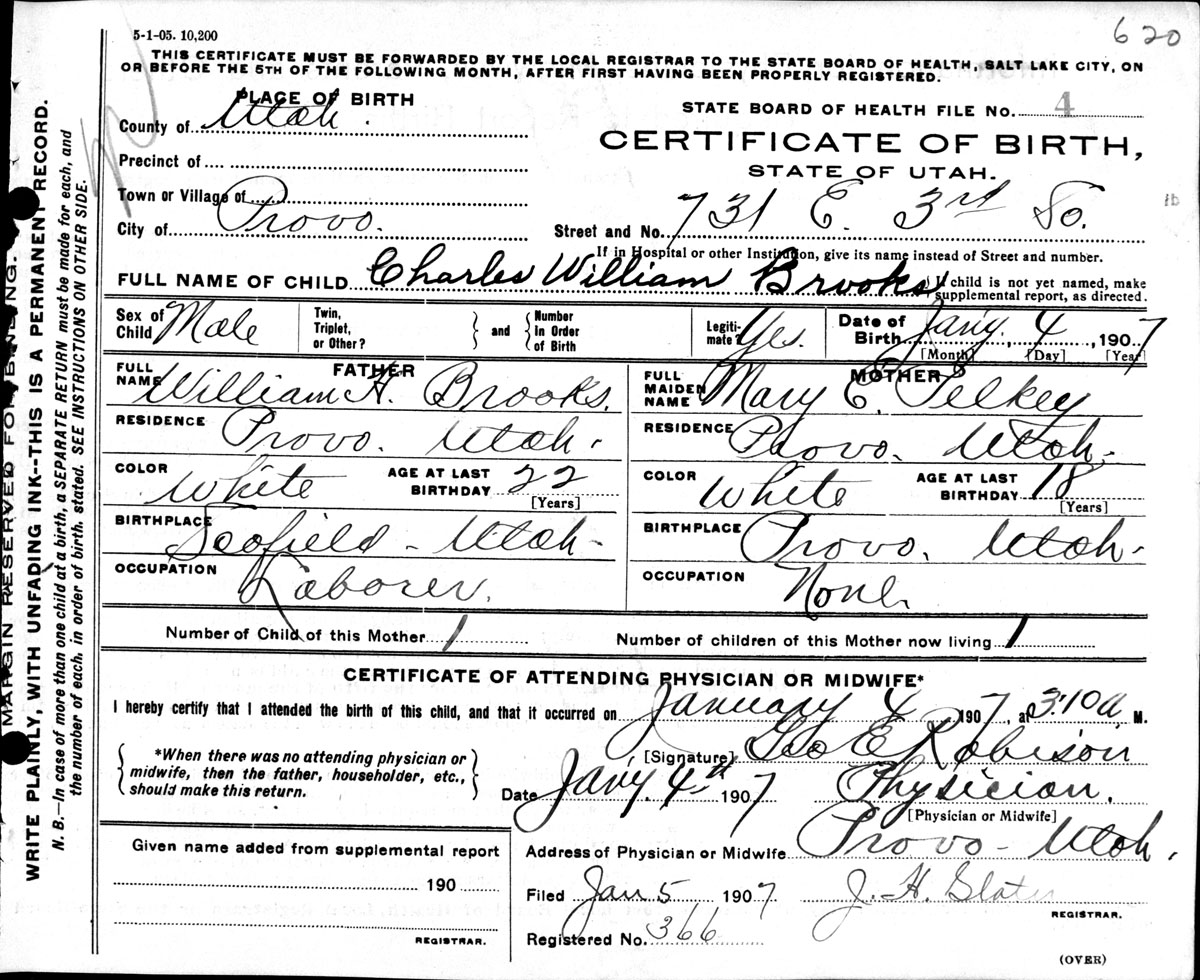 5-1-05. 10,200
620
THIS CERTIFICATE MUST BE FORWARDED BY THE LOCAL REGISTRAR TO THE STATE BOARD OF HEALTH, SALT LAKE CITY, ON
OR BEFORE THE 5TH OF THE FOLLOWING MONTH, AFTER FIRST HAVING BEEN PROPERLY REGISTERED.
PLACE OF BIRTH
STATE BOARD OF HEALTH FILE No. 4
County of Utah.
CERTIFICATE OF BIRTH,
Precinct of
STATE OF UTAH.
Town or Village of
City of Provo.
Street and No. 731 E. 3rd So.
If in Hospital or other Institution, give its name instead of Street and number.
FULL NAME OF CHILD Charles William Brooks
child is not yet named, make
supplemental report, as directed.
Sex of Child Male
Twin, Triplet, or Other? and Number In Order of Birth
Legitimate? Yes.
Date of Birth Jany. 4, 1907
[Month] [Day] [Year]
FATHER
FULL NAME William H. Brooks.
RESIDENCE Provo. Utah.
COLOR White
AGE AT LAST BIRTHDAY 22
[Years]
BIRTHPLACE Scofield - Utah-
OCCUPATION Laborer.
MOTHER
FULL MAIDEN NAME Mary E. Pelkey
RESIDENCE Provo. Utah-
COLOR White
AGE AT LAST BIRTHDAY 18
[Years]
BIRTHPLACE Provo. Utah-
OCCUPATION None.
Number of Child of this Mother 1
Number of children of this Mother now living 1
CERTIFICATE OF ATTENDING PHYSICIAN OR MIDWIFE*
I hereby certify that I attended the birth of this child, and that it occurred on January 4, 1907, at 3:10 a M.
[Signature] Geo E Robison
*When there was no attending physician or
midwife, then the father, householder, etc.,
should make this return.
Date Jany. 4th 1907
Physician.
[Physician or Midwife]
Given name added from supplemental report
190
REGISTRAR.
Address of Physician or Midwife Provo - Utah.
Filed Jan 5 1907
J. H. Slater
REGISTRAR.
Registered No. 366
(OVER)
MARGIN RESERVED FOR BINDING.
WRITE PLAINLY, WITH UNFADING INK--THIS IS A PERMANENT RECORD.
N. B.—In case of more than one child at a birth, a SEPARATE RETURN must be made for each, and
the number of each, in order of birth, stated. SEE INSTRUCTIONS ON OTHER SIDE.